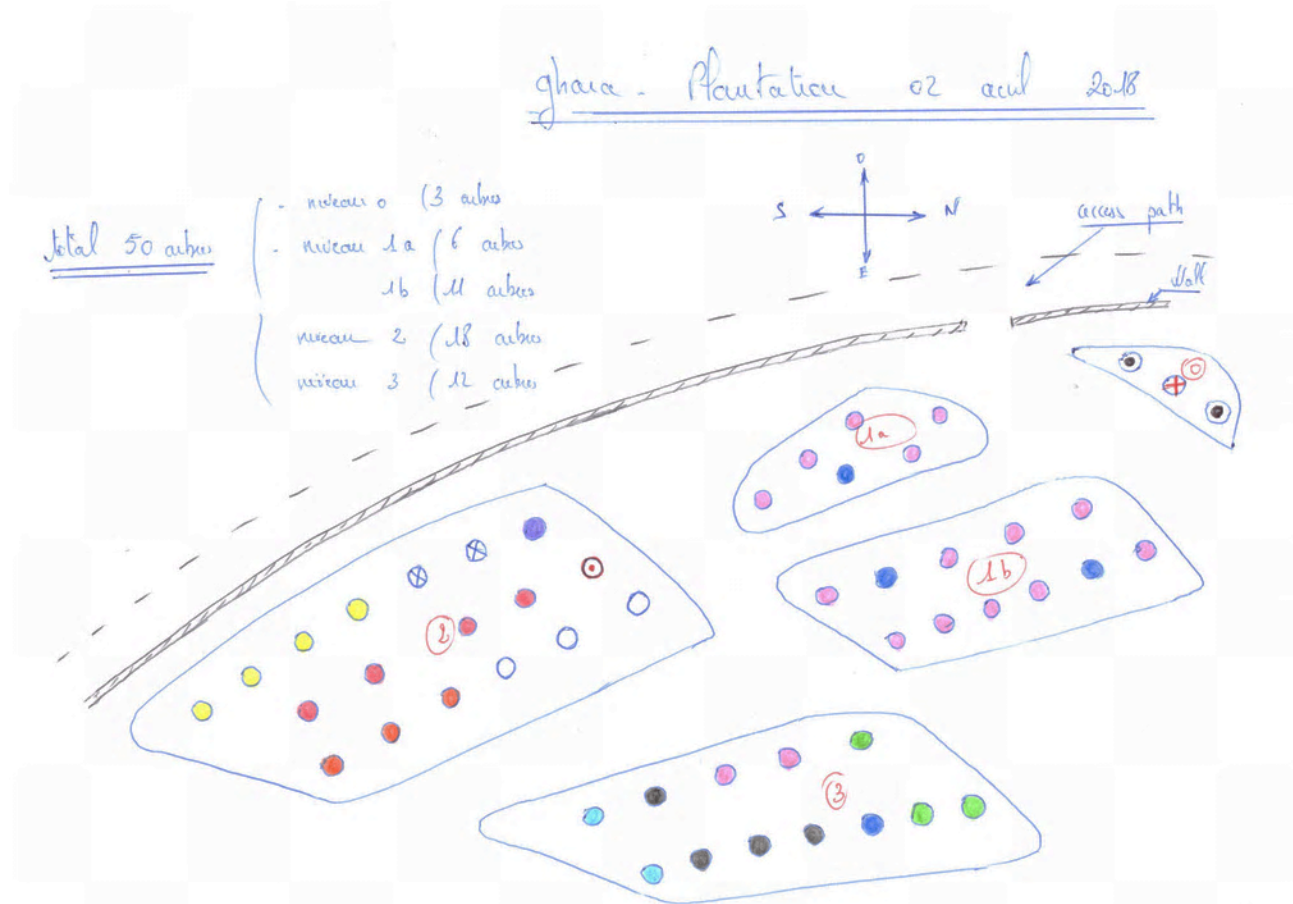 ghaia - Plantation 02 avril 2018
total 50 arbres
- niveau 0 (3 arbres
- niveau 1a (6 arbres
1b (11 arbres
niveau 2 (18 arbres
niveau 3 (12 arbres
O
S N
E
access path
Wall
0
1a
1b
2
3